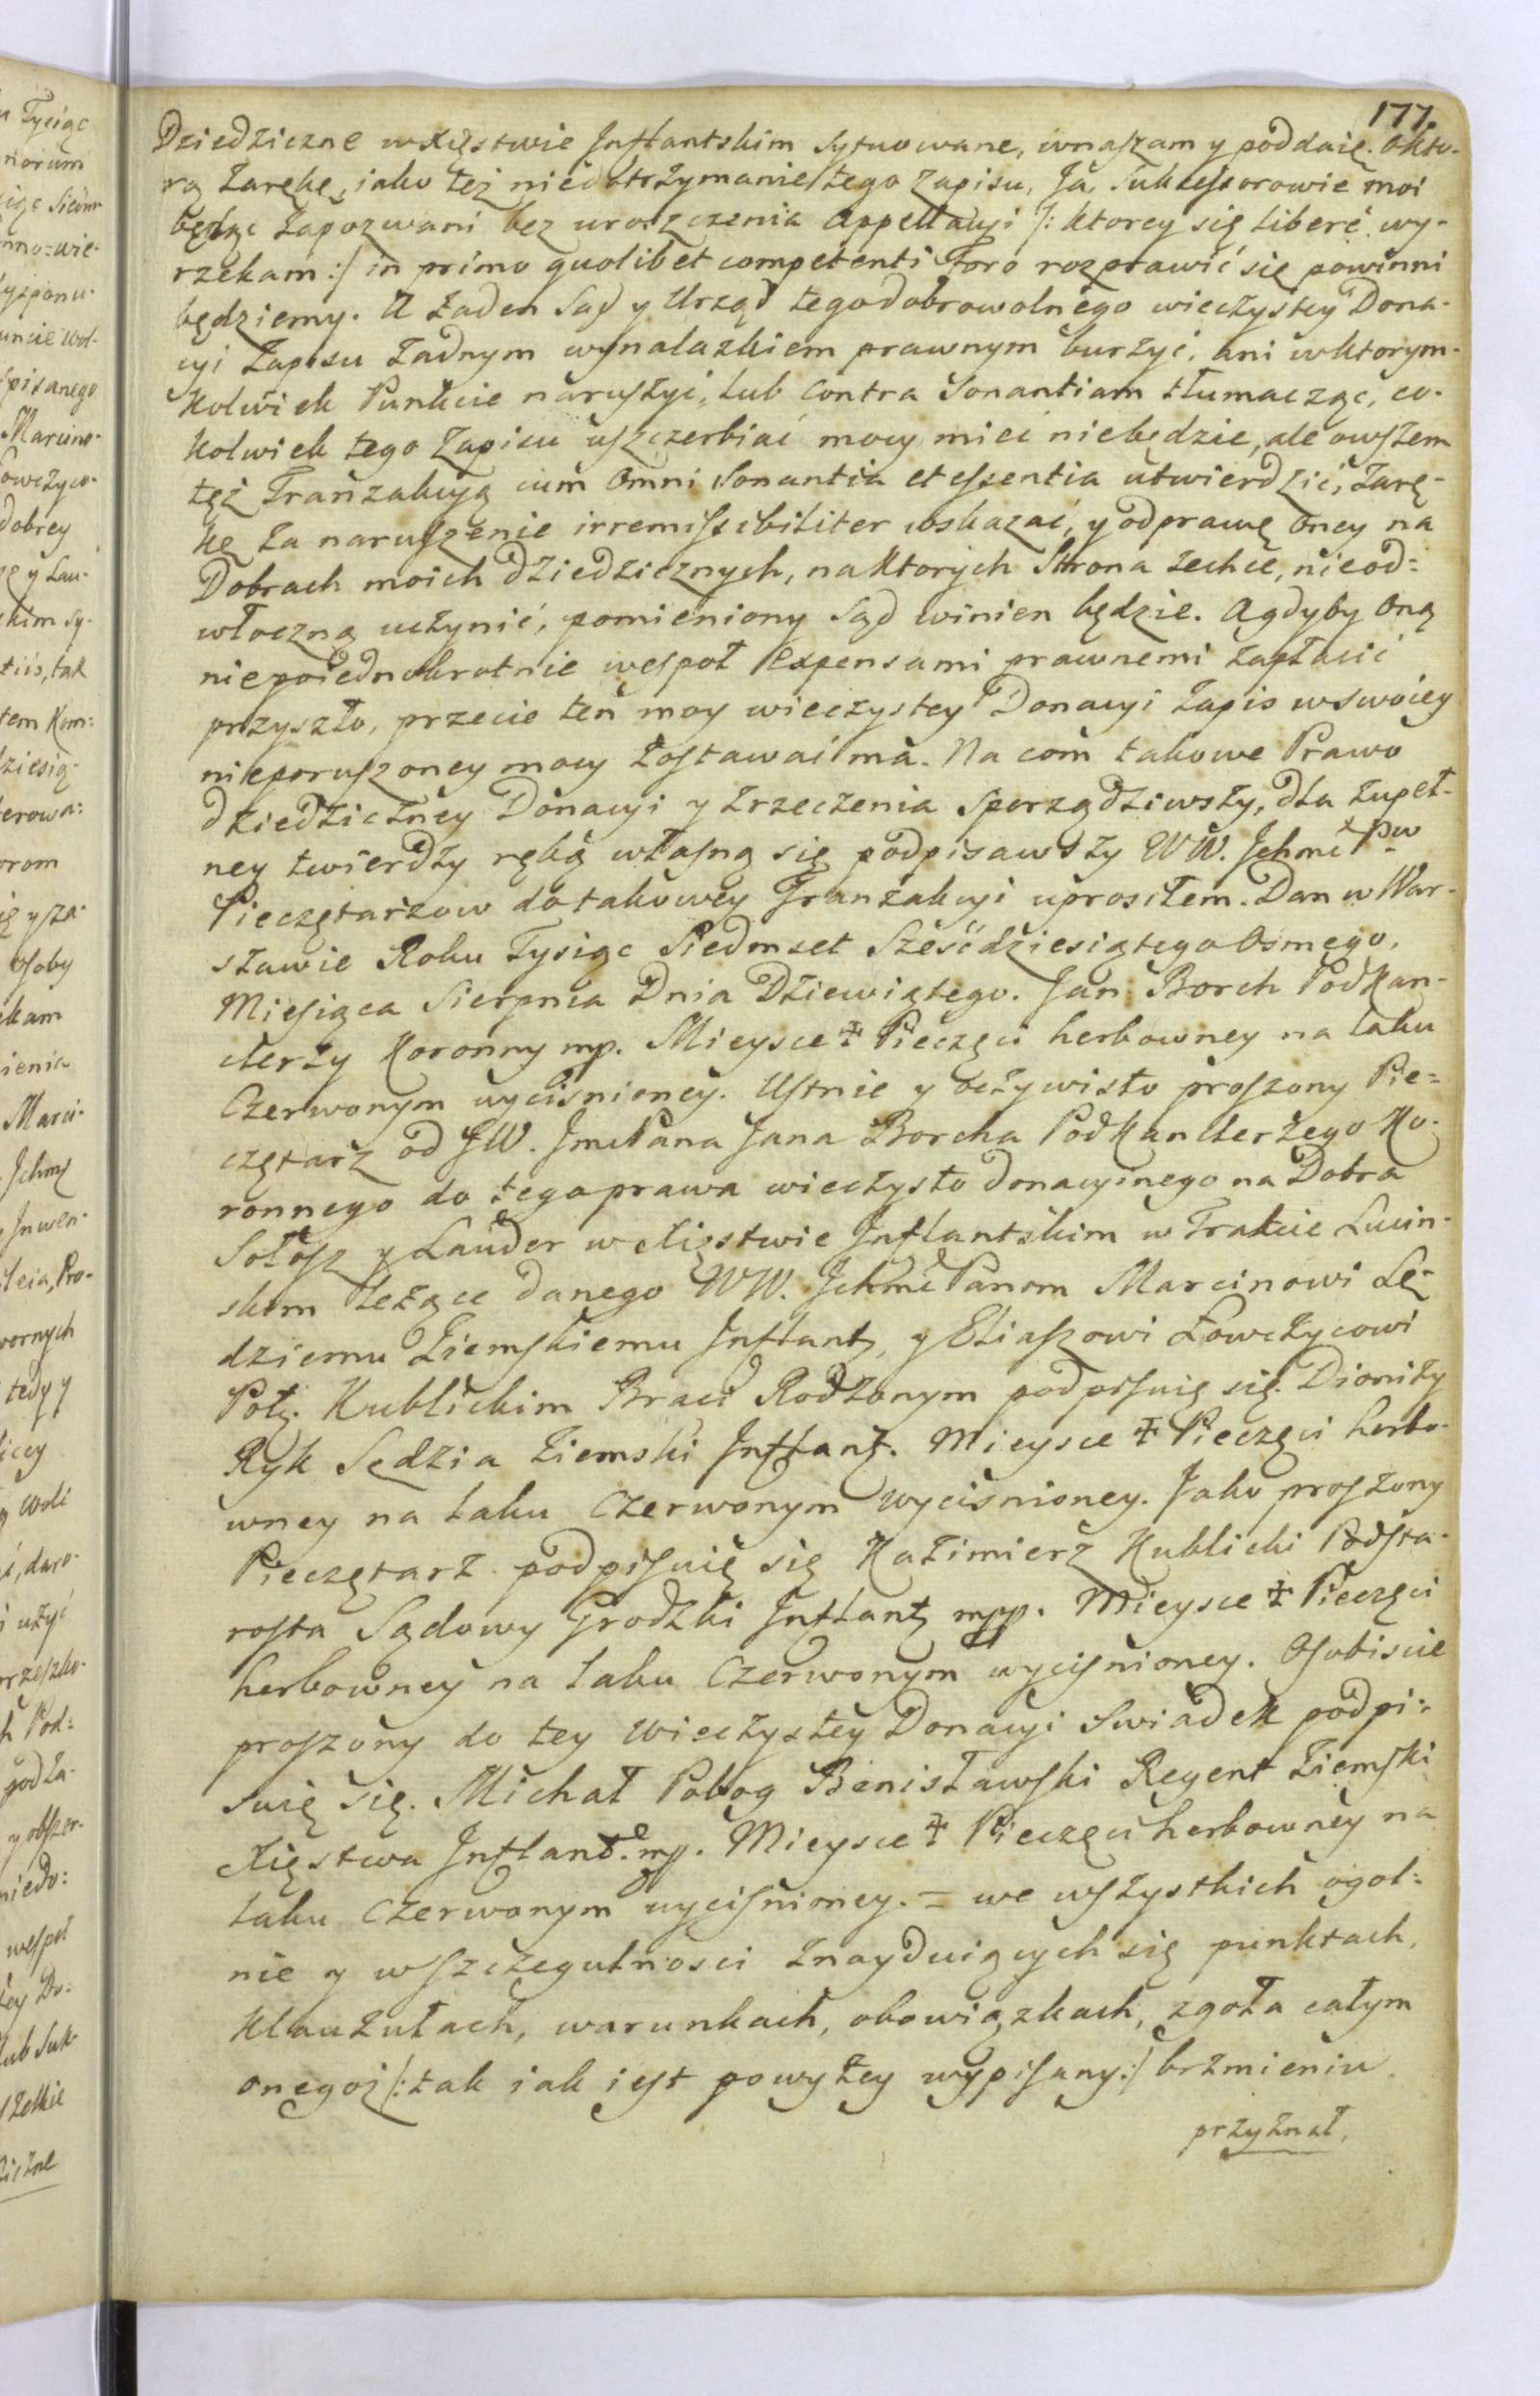 177.
Dziedziczne w Xięstwie Inflantskim sytuowane, wnaszam y poddaię. o kto-
rą Zarękę, iako też nieobtrzymanie tego Zapisu, Ja, Sukcessorowie moi
będąc Zapozwani bez uroszczenia Appellacyi /: ktorey się liberè wy-
rzekam :/ in primo quolibet competenti Foro rozprawić się powinni
będziemy. A żaden Sąd y Urząd tego dobrowolnego wieczystey Dona-
cyi Zapisu Żadnym wynalazkiem prawnym burzyć, ani w ktorym-
kolwiek Punkcie naruszyć, lub contra Sonantiam tłumacząc, co-
kolwiek tego Zapisu uszczerbiać mocy mieć niebędzie, ale owszem
tęż Tranzakcyą cum Omni Sonantia et essentia utwierdzić, Zarę-
kę Za naruszenie irremissibiliter wskazać, y odprawę oney na
Dobrach moich dziedzicznych, na ktorych Strona zechce, nieod=
włoczną uczynić, pomieniony Sąd winien będzie. A gdyby Oną
niepoiednokrotnie wespoł Expensami prawnemi Zapłacić
przyszło, przecie ten moy wieczystey Donacyi Zapis w swoiey
nieporuszoney mocy Zostawać ma. Na com takowe Prawo
dziedziczney Donacyi y Zrzeczenia Sporządziwszy, dla Zupeł-
ney twierdzy ręką własną się podpisawszy WW. Ichmć Pw
Pieczętarzow do takowey Tranzakcyi uprosiłem. Dan w War-
szawie Roku Tysiąc Siedmset Sześćdziesiątego Osmego,
Miesiąca Sierpnia Dnia Dziewiątego. Jan Borch Podkan-
clerzy Koronny mp. Mieysce ✝ Pieczęci herbowney na laku
Czerwonym wyciśnioney. Ustnie y oczywisto proszony Pie=
czętarz od JW. Jmć Pana Jana Borcha Podkanclerzego Ko-
ronnego do tego prawa wieczysto donacyinego na Dobra
Sołosz y Lauder w Xięstwie Inflantskim w Trakcie Lucin-
skim leżące danego WW. Ichmć Panom Marcinowi Sę-
dziemu Ziemskiemu Inflant, y Eliaszowi Łowczycowi
Poł. Kublickim Braci Rodzonym podpisuię się. Dionizy
Ryk Sędzia Ziemski Inflant. Mieysce ✝ Pieczęci herbo-
wney na laku Czerwonym wycisnioney. Jako proszony
Pieczętarz podpisuię się Kazimierz Kublicki Podsta-
rosta Sądowy Grodzki Inflant mpp. Mieysce ✝ Pieczęci
herbowney na laku Czerwonym wycisnioney. Osobiscie
proszony do tey Wieczystey Donacyi Swiadek podpi=
suię się. Michał Pobog Benisławski Regent Ziemski
Xięstwa Inflant. mp. Mieysce ✝ Pieczęci herbowney na
laku Czerwonym wycisnioney. = we wszystkich ogol=
nie y w szczegulnosci Znayduiących się punktach,
Klauzułach, warunkach, obowiązkach, zgoła całym
onegoż /: tak iak iest powyżey wypisany :/ brzmieniu
przyznał.